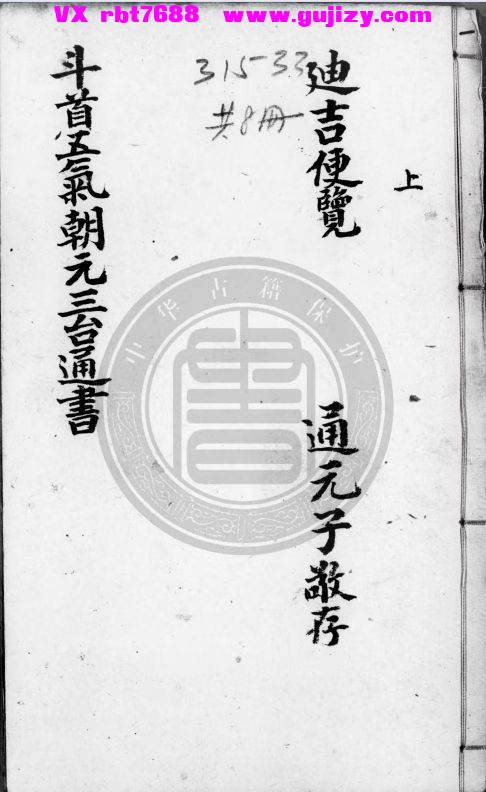 VX rbt7688 www.gujizy.com
上
廸吉便覽
通元子敬存
31533
共8冊
斗首五氣朝元三台通書
中华古籍保护
書